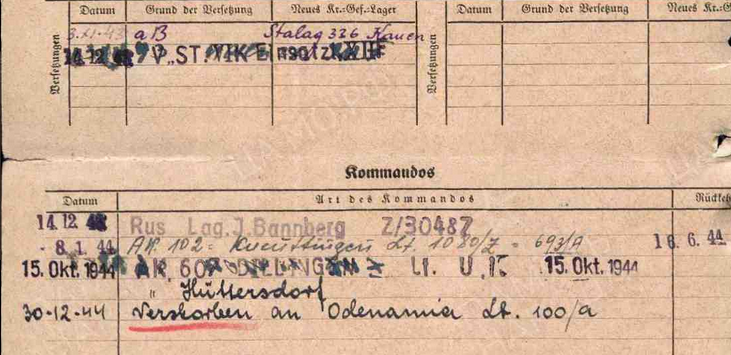 Datum Grund der Versetzung Neues Kr.-Gef.-Lager Datum Grund der Versetzung Neues Kr.-G
Versetzungen
3.XI.43 aB Stalag 326
14.12. V„ST.
Versetzungen
Kommandos
Datum Art des Kommandos Rückke
14.12 Rus Lag. J. Bannberg Z/30487
-8.1.44 AK. 102 - Lt. 1080/Z - 693/A 16.6.44
15. Okt. 1944 AK. 60 Lt. U.K 15. Okt. 1944
" Hüttersdorf
30-12-44 Verstorben an Odenamia Lt. 100/a